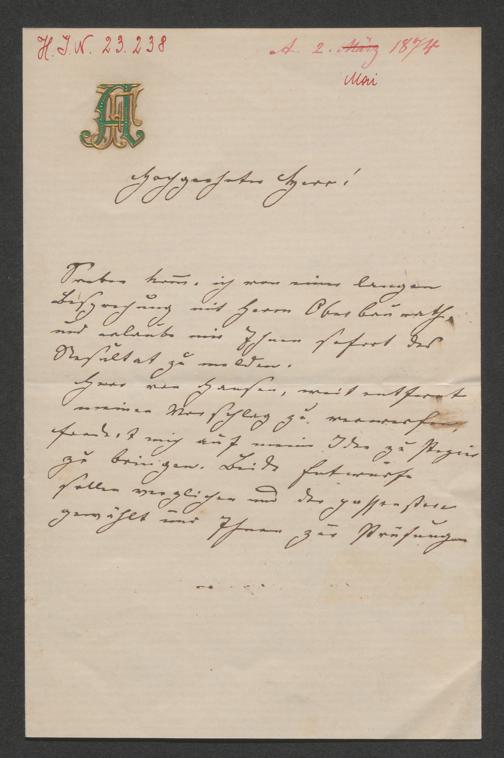 H. I. N. 23.238
A. 2. März 1874
Mai
Hochgeehrter Herr!
Soeben kom̄e ich von einer langen
Besprechung mit Herrn Oberbaurath
und erlaube mir Ihnen sofort das
Resultat zu melden.
Herr von Hansen, weit entfernt
meinen Vorschlag zu verwerfen,
fordert mich auf meine Idee zu Papier
zu bringen. Beide Entwürfe
sollen verglichen und der passendere
gewählt und Ihnen zur Prüfung